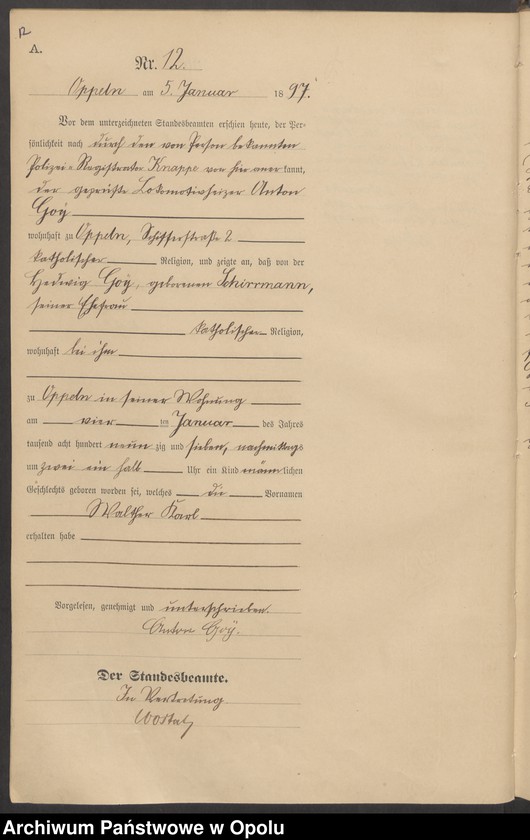 12
A.
Nr. 12.
Oppeln am 5. Januar 1897.
Vor dem unterzeichneten Standesbeamten erschien heute, der Per-
sönlichkeit nach durch den von Person bekannten
Polizei-Registrator Knappe von hier anerkannt,
der geprüfte Lokomotivheizer Anton
Goÿ
wohnhaft zu Oppeln, Schifferstraße 2
katholischer Religion, und zeigte an, daß von der
Hedwig Goÿ, geborenen Schirrmann,
seiner Ehefrau
katholischen Religion,
wohnhaft bei ihm
zu Oppeln in seiner Wohnung
am vier ten Januar des Jahres
tausend acht hundert neunzig und sieben, nachmittags
um zwei ein halb Uhr ein Kind männlichen
Geschlechts geboren worden sei, welches die Vornamen
Walther Karl
erhalten habe
Vorgelesen, genehmigt und unterschrieben.
Anton Goÿ.
Der Standesbeamte.
In Vertretung
Archiwum Państwowe w Opolu